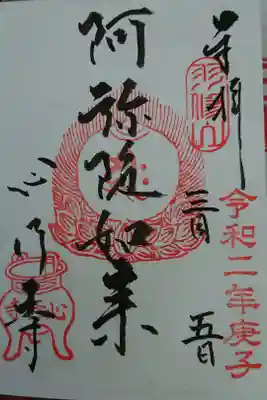 奉拝
令和二年庚子
三月
五日
阿弥陀如来
心月寺